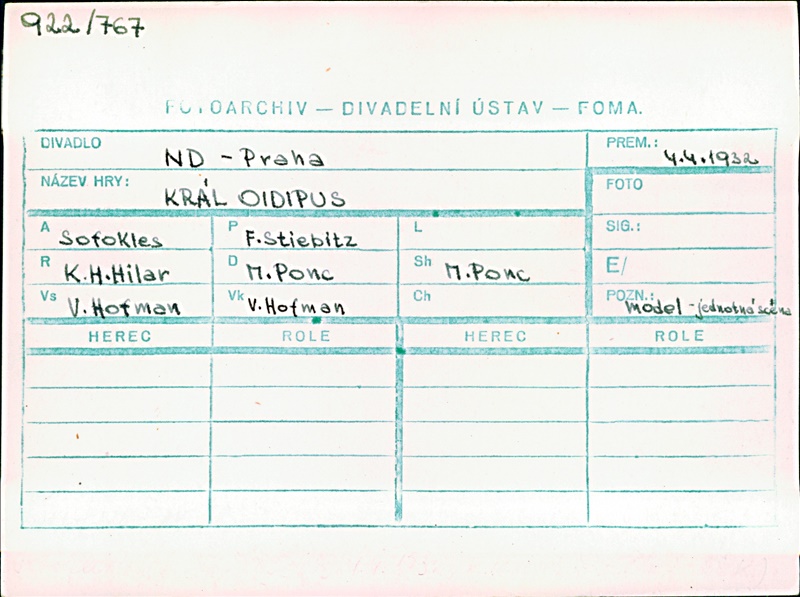 922/767
FOTOARCHIV — DIVADELNÍ ÚSTAV — FOMA.
DIVADLO ND - Praha PREM.: 4.4.1932
NÁZEV HRY: KRÁL OIDIPUS FOTO
A Sofokles P F. Stiebitz L SIG.:
R K.H.Hilar D M. Ponc Sh M. Ponc E/
Vs V. Hofman Vk V. Hofman Ch POZN.: model - jednotná scéna
HEREC ROLE HEREC ROLE